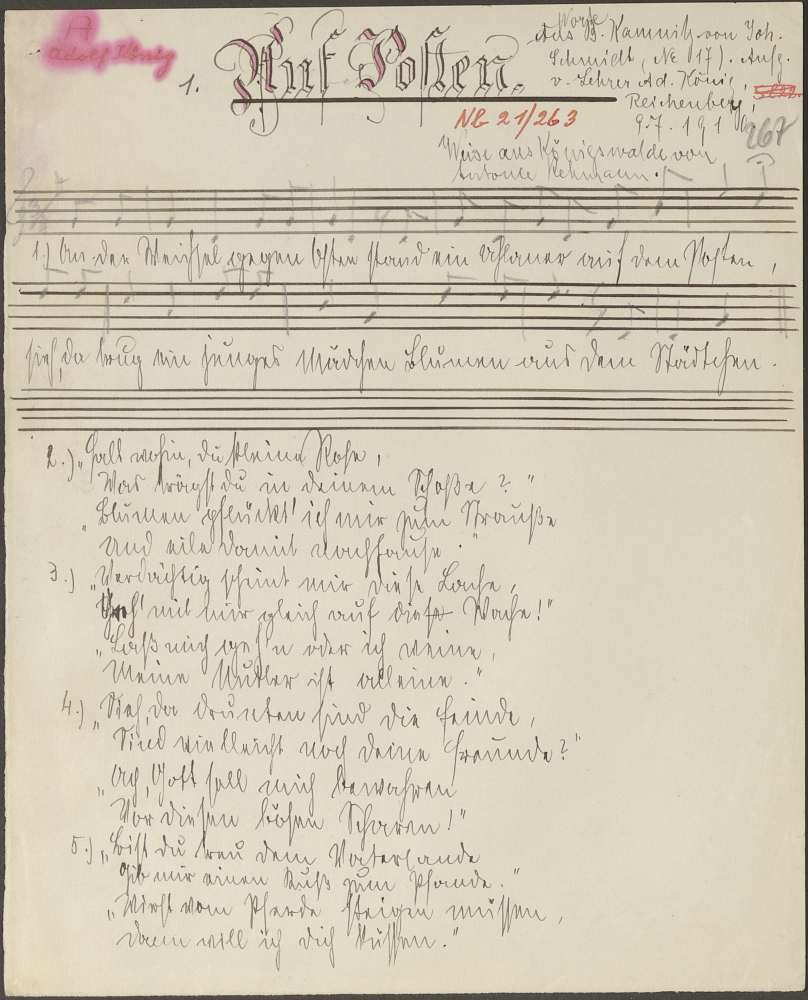 A
Adolf König
1. Auf Posten.
Worte
Aus B. Kamnitz von Joh.
Schmidt, Nr 17). Aufg.
v. Lehrer Ad. König,
Reichenberg,
NB 21/263
9.7.191
267
Weise aus Königswalde von
Antonie Rehmann.
1.) An der Weichsel gegen Osten stand ein Uhlaner auf dem Posten,
sieh, da trug ein junges Mädchen Blumen aus dem Städtchen.
2.) „Halt wohin, du kleine Rose,
Was trägst du in deinem Schoße?"
„Blumen pflückt' ich mir zum Strauße
Und eile damit nachhause."
3.) „Verdächtig scheint mir diese Sache,
Geh' mit mir gleich auf diese Wache!"
„Laß mich geh'n oder ich weine,
Meine Mutter ist alleine."
4.) „Sieh, da drunten sind die Feinde,
Sind vielleicht noch deine Freunde?"
„Ach, Gott soll mich bewahren
Vor diesen bösen Scharen!"
5.) „Bist du treu dem Vaterlande
Gib mir einen Kuß zum Pfande."
„Wirst vom Pferde steigen müssen,
dann will ich dich küssen."